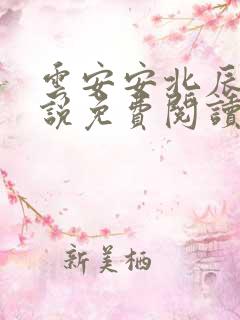 雲安安北辰
說免費閱讀
新美栖